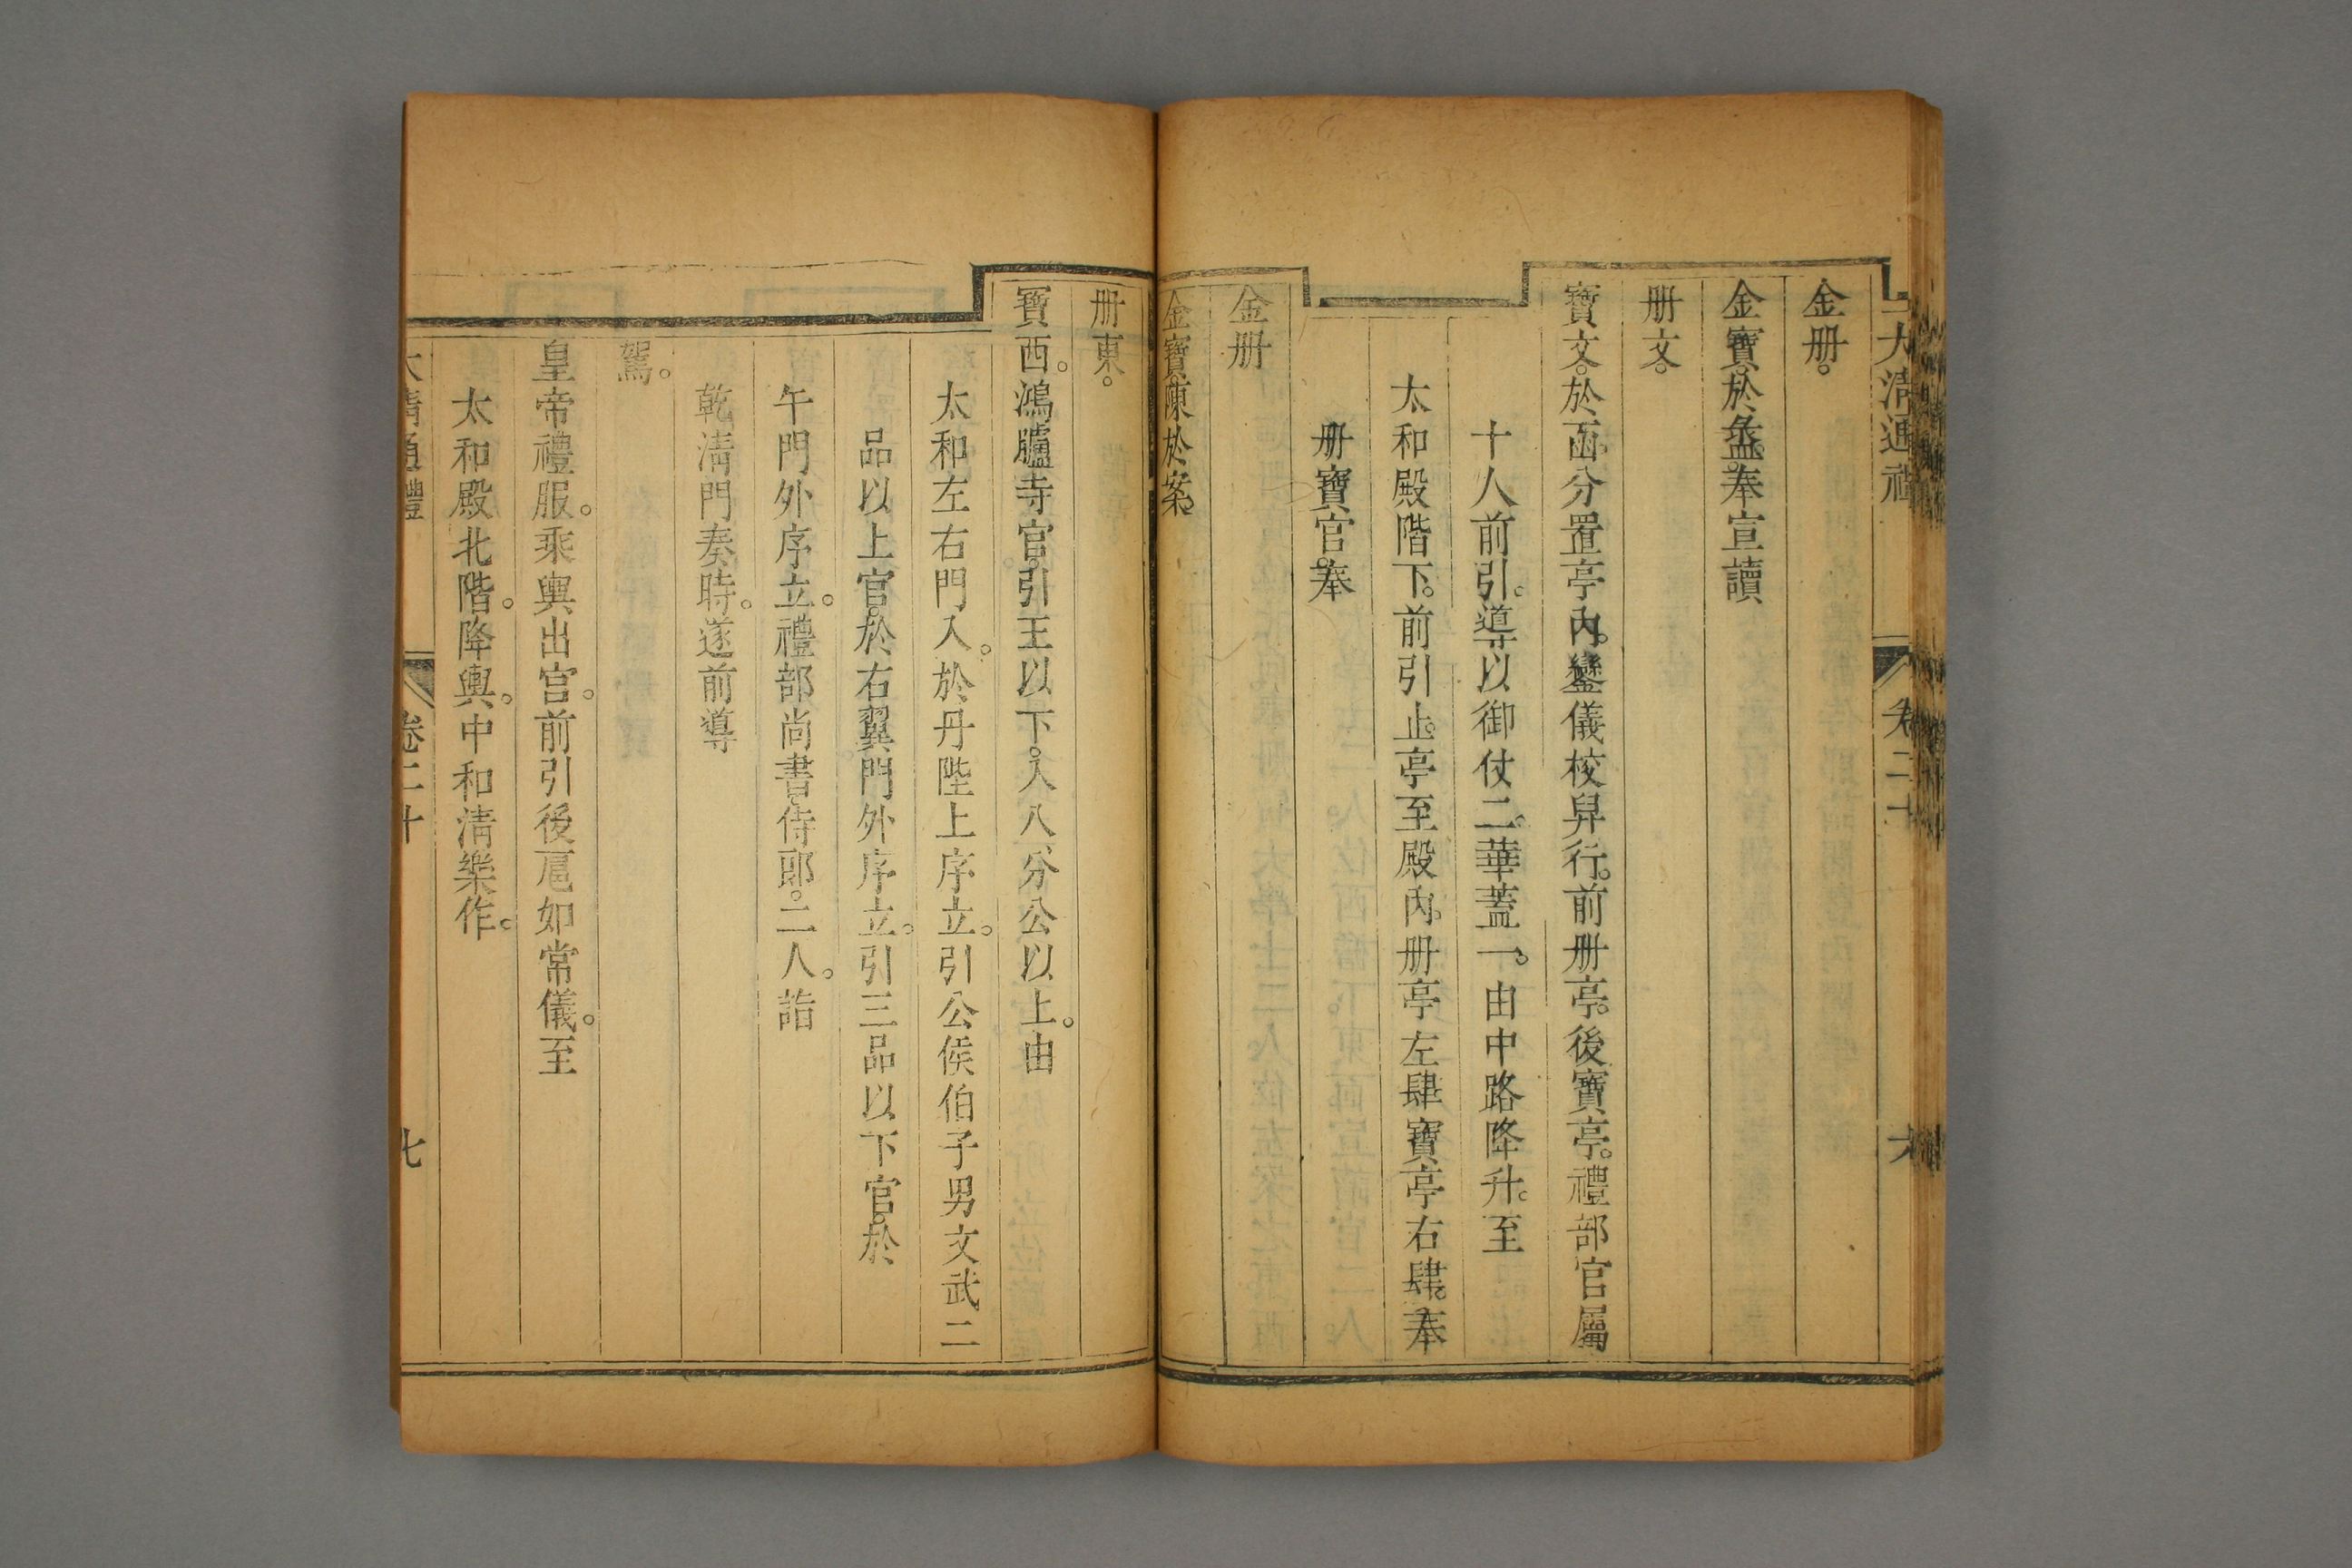 大清通禮 卷二十 六
金册。
金寶。於盝。奉宣讀
册文。
寶文。於函。分置亭內。鑾儀校舁行。前册亭。後寶亭。禮部官屬
十人前引。導以御仗二。華蓋一。由中路降升。至
太和殿階下。前引止。亭至殿內。册亭左肆。寶亭右肆。奉
册寶官。奉
金册
金寶。陳於案。
册東。
寶西。鴻臚寺官。引王以下。入八分公以上。由
太和左右門入。於丹陛上序立。引公侯伯子男文武二
品以上官。於右翼門外序立。引三品以下官。於
午門外序立。禮部尚書。侍郎。二人。詣
乾清門奏時。遂前導
駕。
皇帝禮服。乘輿出宮。前引後扈如常儀。至
太和殿北階。降輿。中和清樂作。
大清通禮 卷二十 七